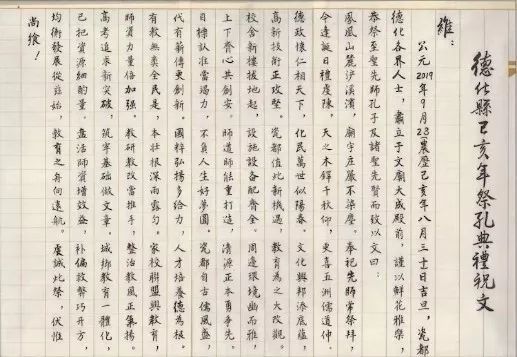 德化縣己亥年祭孔典禮祝文
維：
公元2019年9月28(農歷己亥年八月三十日吉旦，瓷都
德化各界人士，肅立于文廟大成殿前，謹以鮮花雅樂
恭祭至聖先師孔子及諸聖先賢而致以文曰：
鳳凰山麓滻溪濱，廟宇庄嚴不染塵。奉祀先師常祭拜，
今逢誕日禮虔陳，天之木鐸千秋仰，更喜五洲儒道伸。
德政懷仁相天下，化民萬世似陽春。文化興邦添底蘊，
高新技術正改整。瓷都值此新機遇，教育為之大改觀。
校舍新樓拔地起，設施設備配齊全。周邊環境幽而雅，
上下齊心共創安。師道師能重打造，清源正本勇爭先。
目標認准當竭力，不負人生好夢圓。瓷都自古儒風盛，
代有薪傳更創新。國粹弘揚多給力，人才培養德為根。
有教無類全民是，本壯根深雨露勻。家校聯盟興教育，
師資力量倍加強。教研教改當推手，整治教風正氣揚。
高考追求新突破，筑牢基礎做文章。城鄉教育一體化，
己把資源細酌量。盤活師資增效益，補偏救弊巧開方，
均衡發展從茲始，教育之舟向遠航。虔誠此祭，伏惟
尚饗！